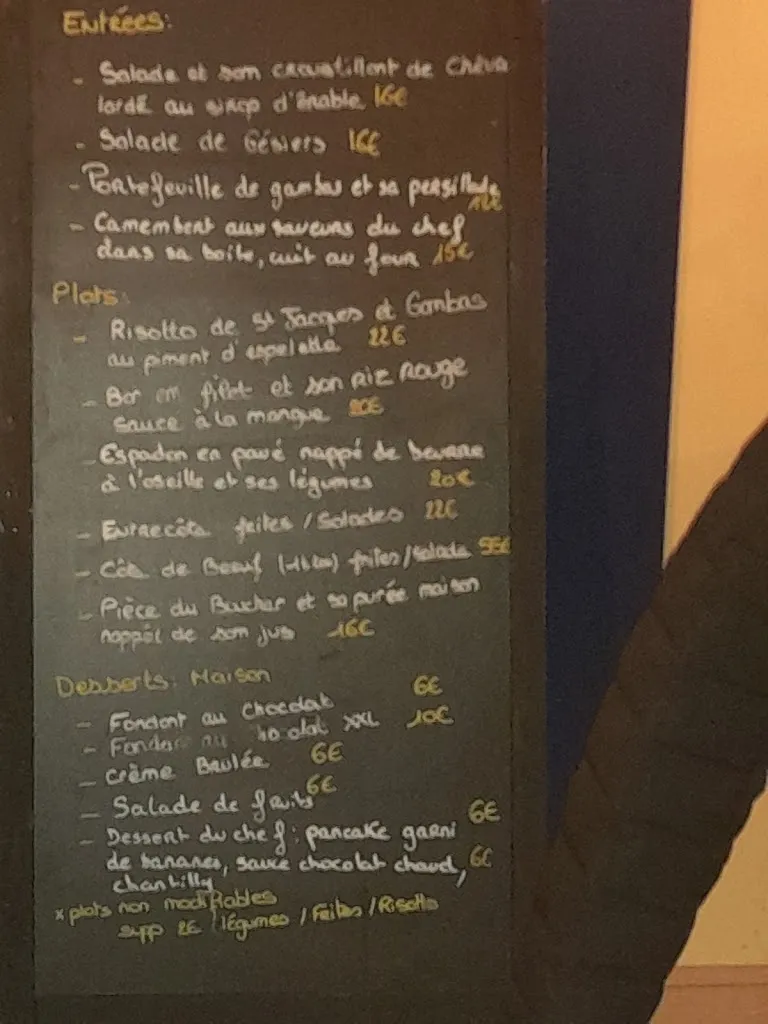 Entrées:
- Salade et son croustillant de Chèvre
lardé au sirop d'érable 16€
- Salade de Gésiers 16€
- Portefeuille de gambas et sa persillade
- Camembert aux saveurs du chef
dans sa boite, cuit au four 15€
Plats:
- Risotto de St Jacques et Gambas
au piment d'espelette 22€
- Bar en filet et son riz rouge
sauce à la mangue 20€
- Espadon en pavé nappé de beurre
à l'oseille et ses légumes 20€
- Entrecôte frites / Salades 22€
- Côte de Boeuf frites/salade 55€
- Pièce du Boucher et sa purée maison
nappée de son jus 16€
Desserts: Maison
- Fondant au Chocolat 6€
- Fondant au chocolat XXL 10€
- Crème Brulée 6€
- Salade de fruits 6€
- Dessert du chef: pancake garni 6€
de bananes, sauce chocolat chaud, 6€
chantilly
* plats non modifiables
supp 2€ légumes / Frites / Risotto